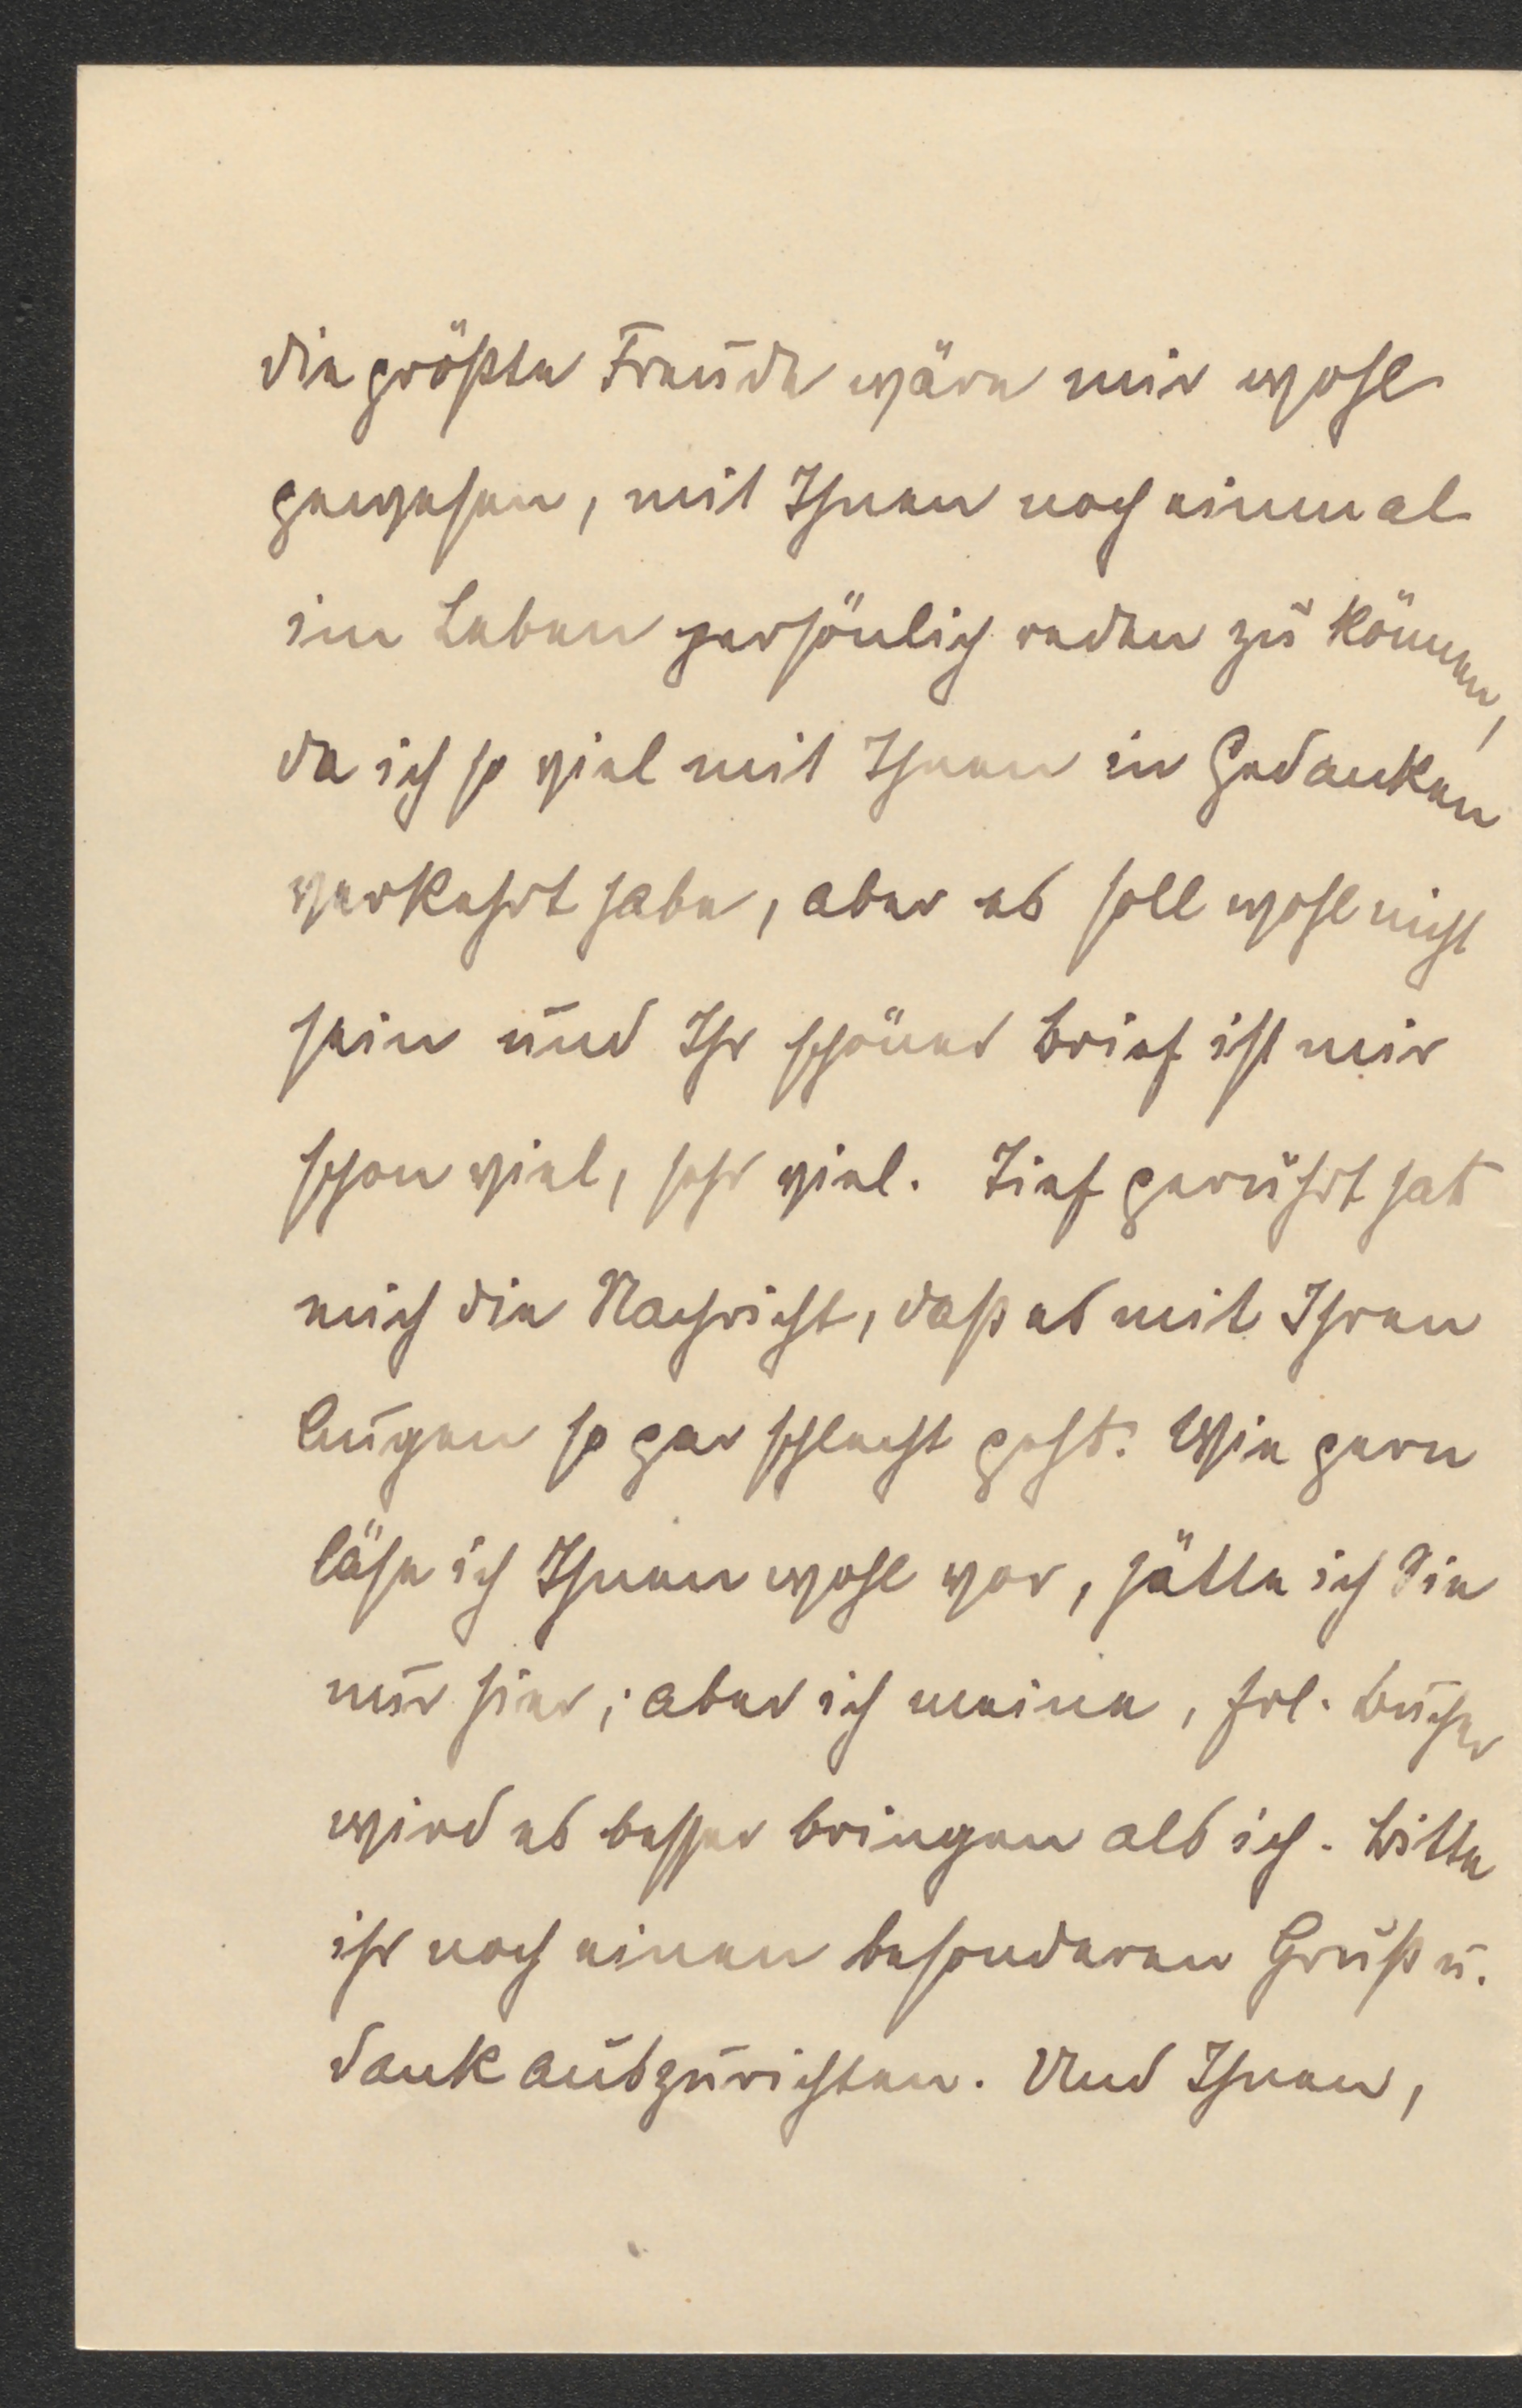 die größte Freude wäre mir wohl
gewesen, mit Ihnen noch einmal
im Leben persönlich reden zu können,
da ich so viel mit Ihnen in Gedanken
verkehrt habe, aber es soll wohl nicht
sein und Ihr schöner Brief ist mir
schon viel, sehr viel. Tief gerührt hat
mich die Nachricht, daß es mit Ihren
Augen so gar schlecht geht. Wie gern
läse ich Ihnen wohl vor, hätte ich Sie
nur hier; aber ich meine, Frl. Bucher
wird es besser bringen als ich. Bitte
ihr noch einen besonderen Gruß u.
Dank auszurichten. Und Ihnen,